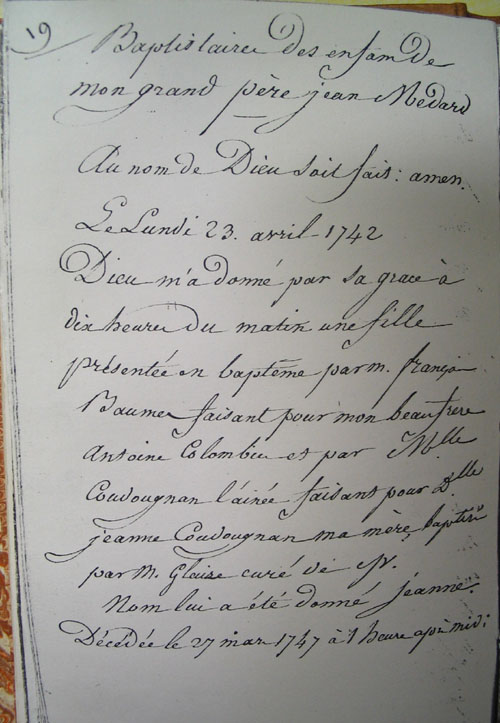 19
Baptistaire des enfam de
mon grand père jean Médard
Au nom de Dieu soit fait: amen.
Le Lundi 23. avril 1742
Dieu m'a donné par sa grace à
dix heures du matin une fille
présentée en baptême par m. françois
Baumes faisant pour mon beaufrere
Antoine Colombier et par Mlle
Coudougnan l'ainée faisant pour Dlle
jeanne Coudougnan ma mère, baptisée
par M. Glaize curé de
Nom lui a été donné jeanne.
Décédée le 27 mars 1747 à 1 heure après midi